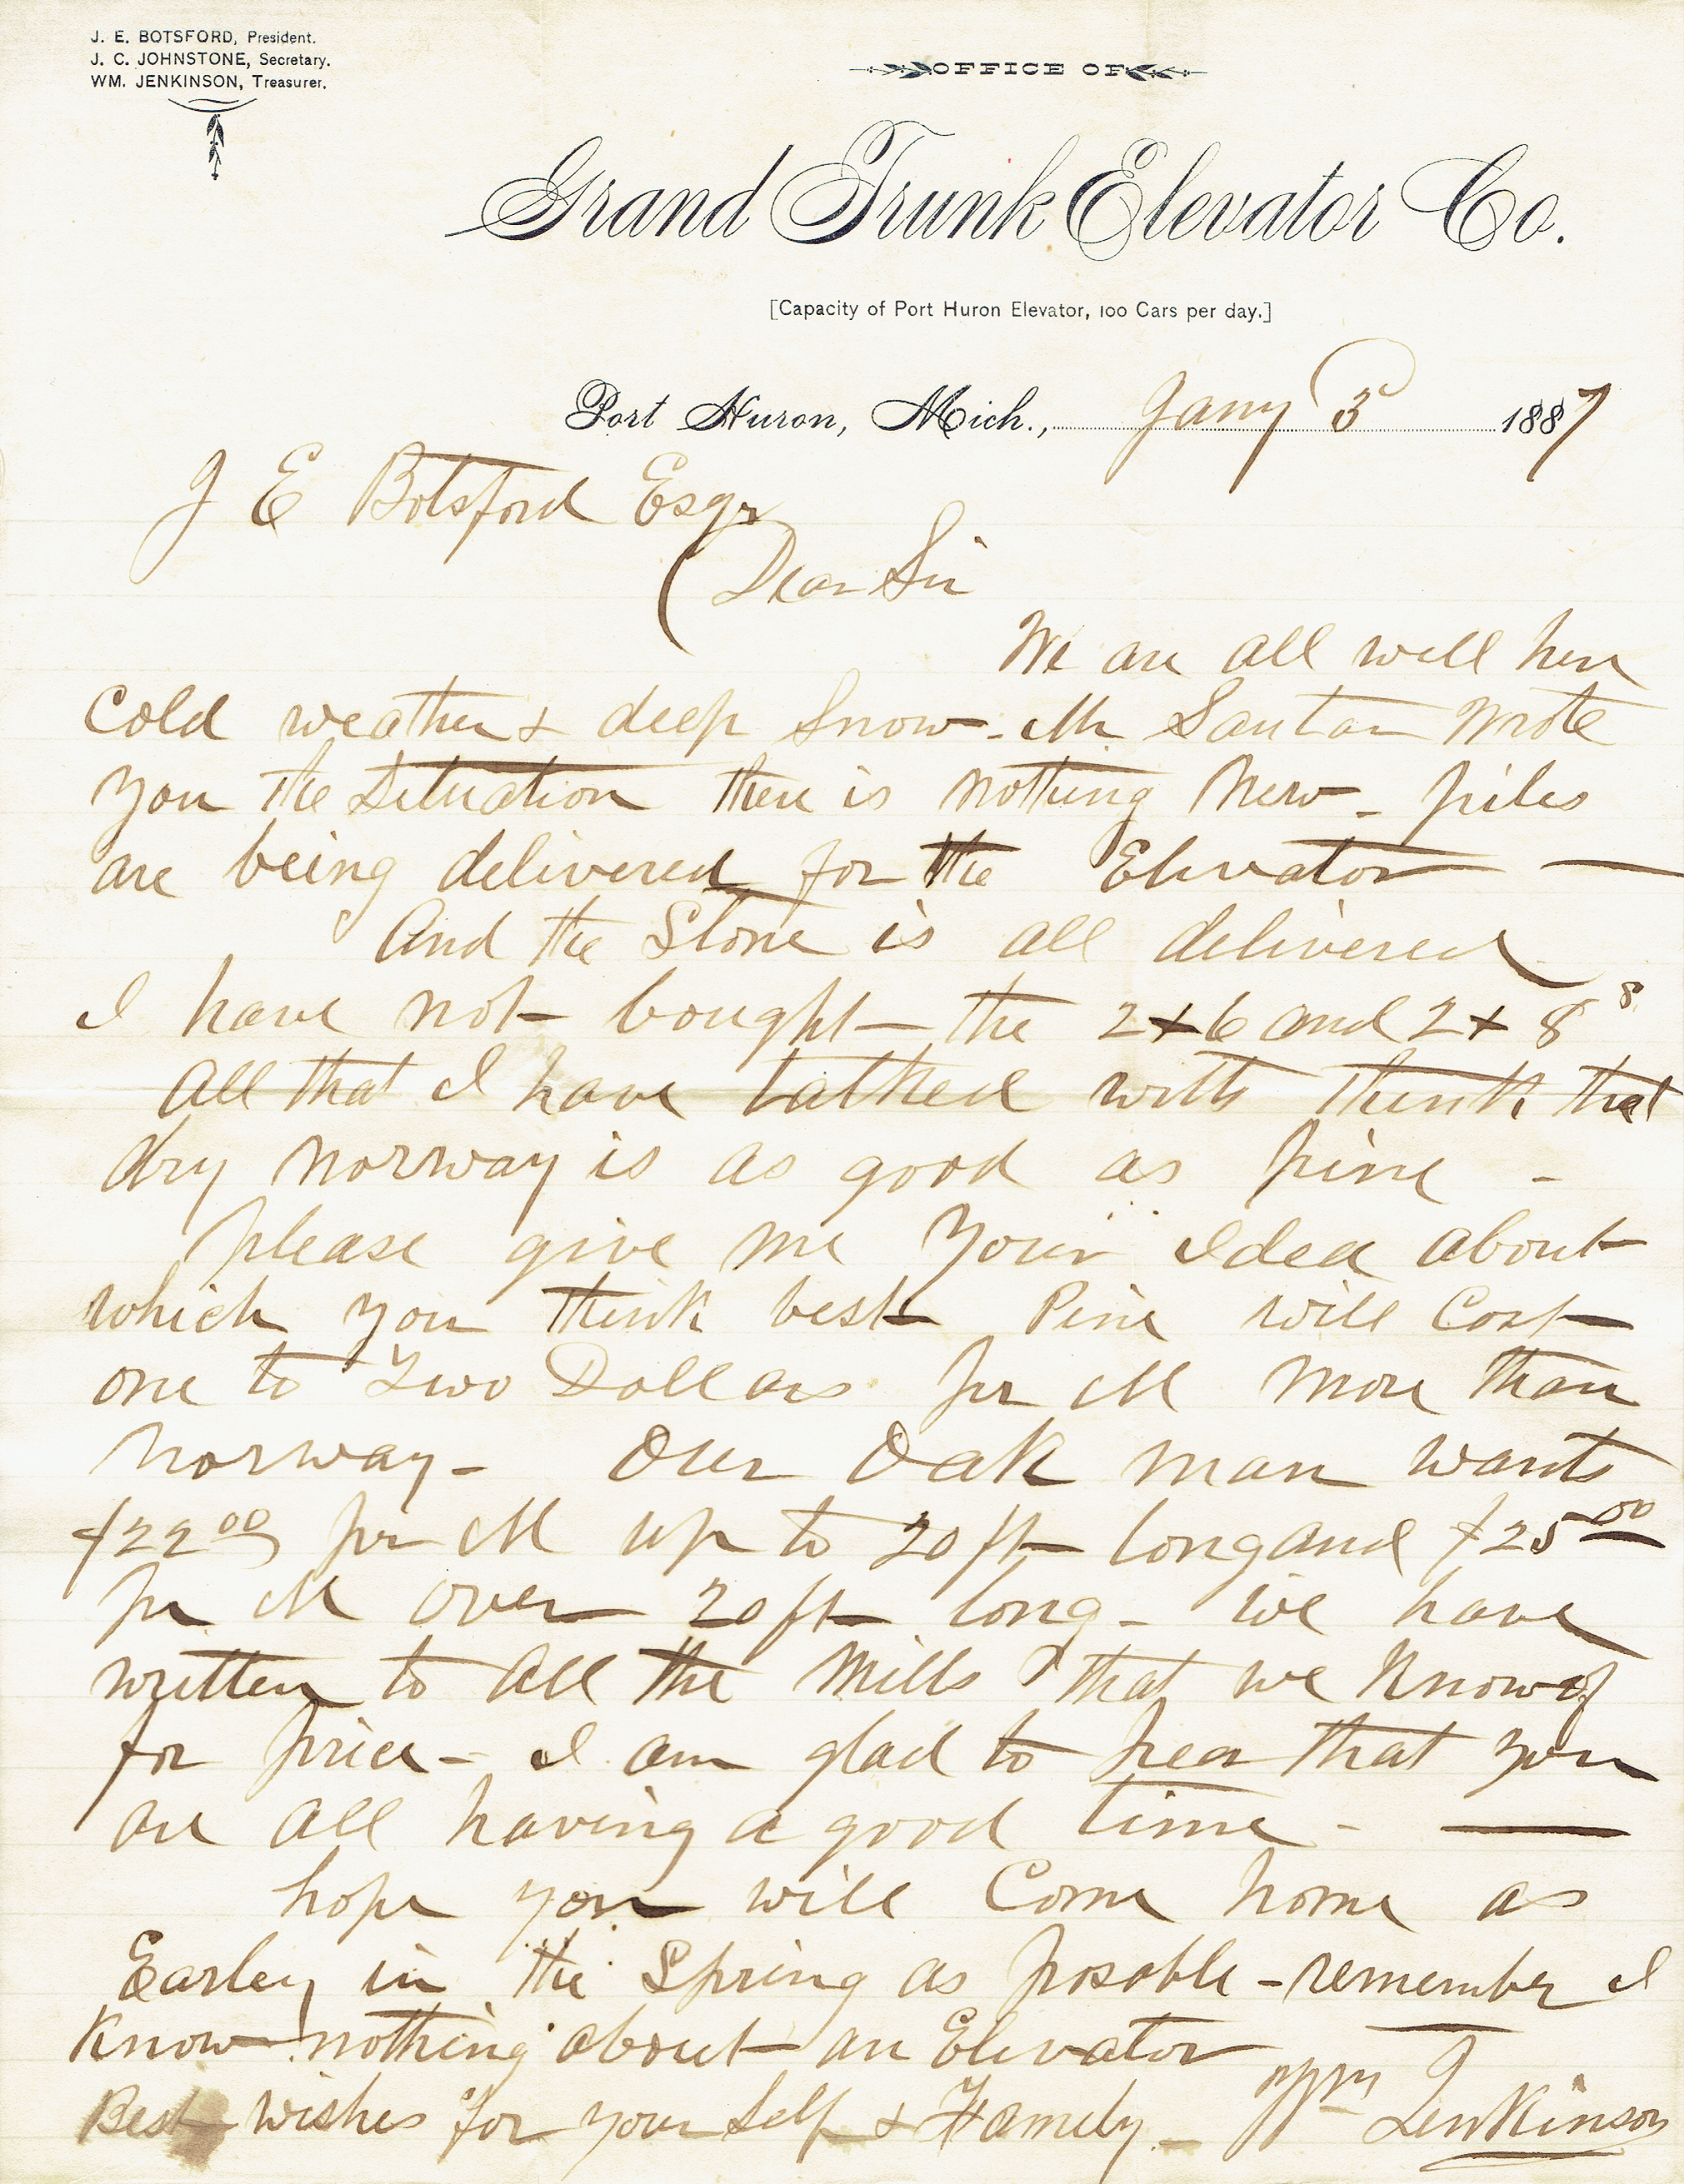 J. E. BOTSFORD, President.
J. C. JOHNSTONE, Secretary.
WM. JENKINSON, Treasurer.
OFFICE OF
Grand Trunk Elevator Co.
[Capacity of Port Huron Elevator, 100 Cars per day.]
Port Huron, Mich., Jany 5 1887
J E Botsford Esqr
Dear Sir
We are all well here
Cold weather & deep Snow - Mr wrote
you the Situation there is nothing New - piles
are being delivered for the Elevator —
And the Stone is all delivered
I have not bought the 2x6 and 2x8 8
All that I have talked with think that
dry Norway is as good as pine -
please give me your Idea about
which you think best Pine will Cost
one to Two Dollars pr M more than
Norway - Our Oak man wants
$22 00 pr M up to 20 ft long and $25 00
pr M over 20 ft long - We have
written to All the Mills that we Know of
for price - I am glad to hear that you
are all having a good time - —
hope you will Come home as
Earley in the Spring as posable - remember I
Know nothing about an Elevator
Best wishes for your Self & Family - Wm Jenkinson